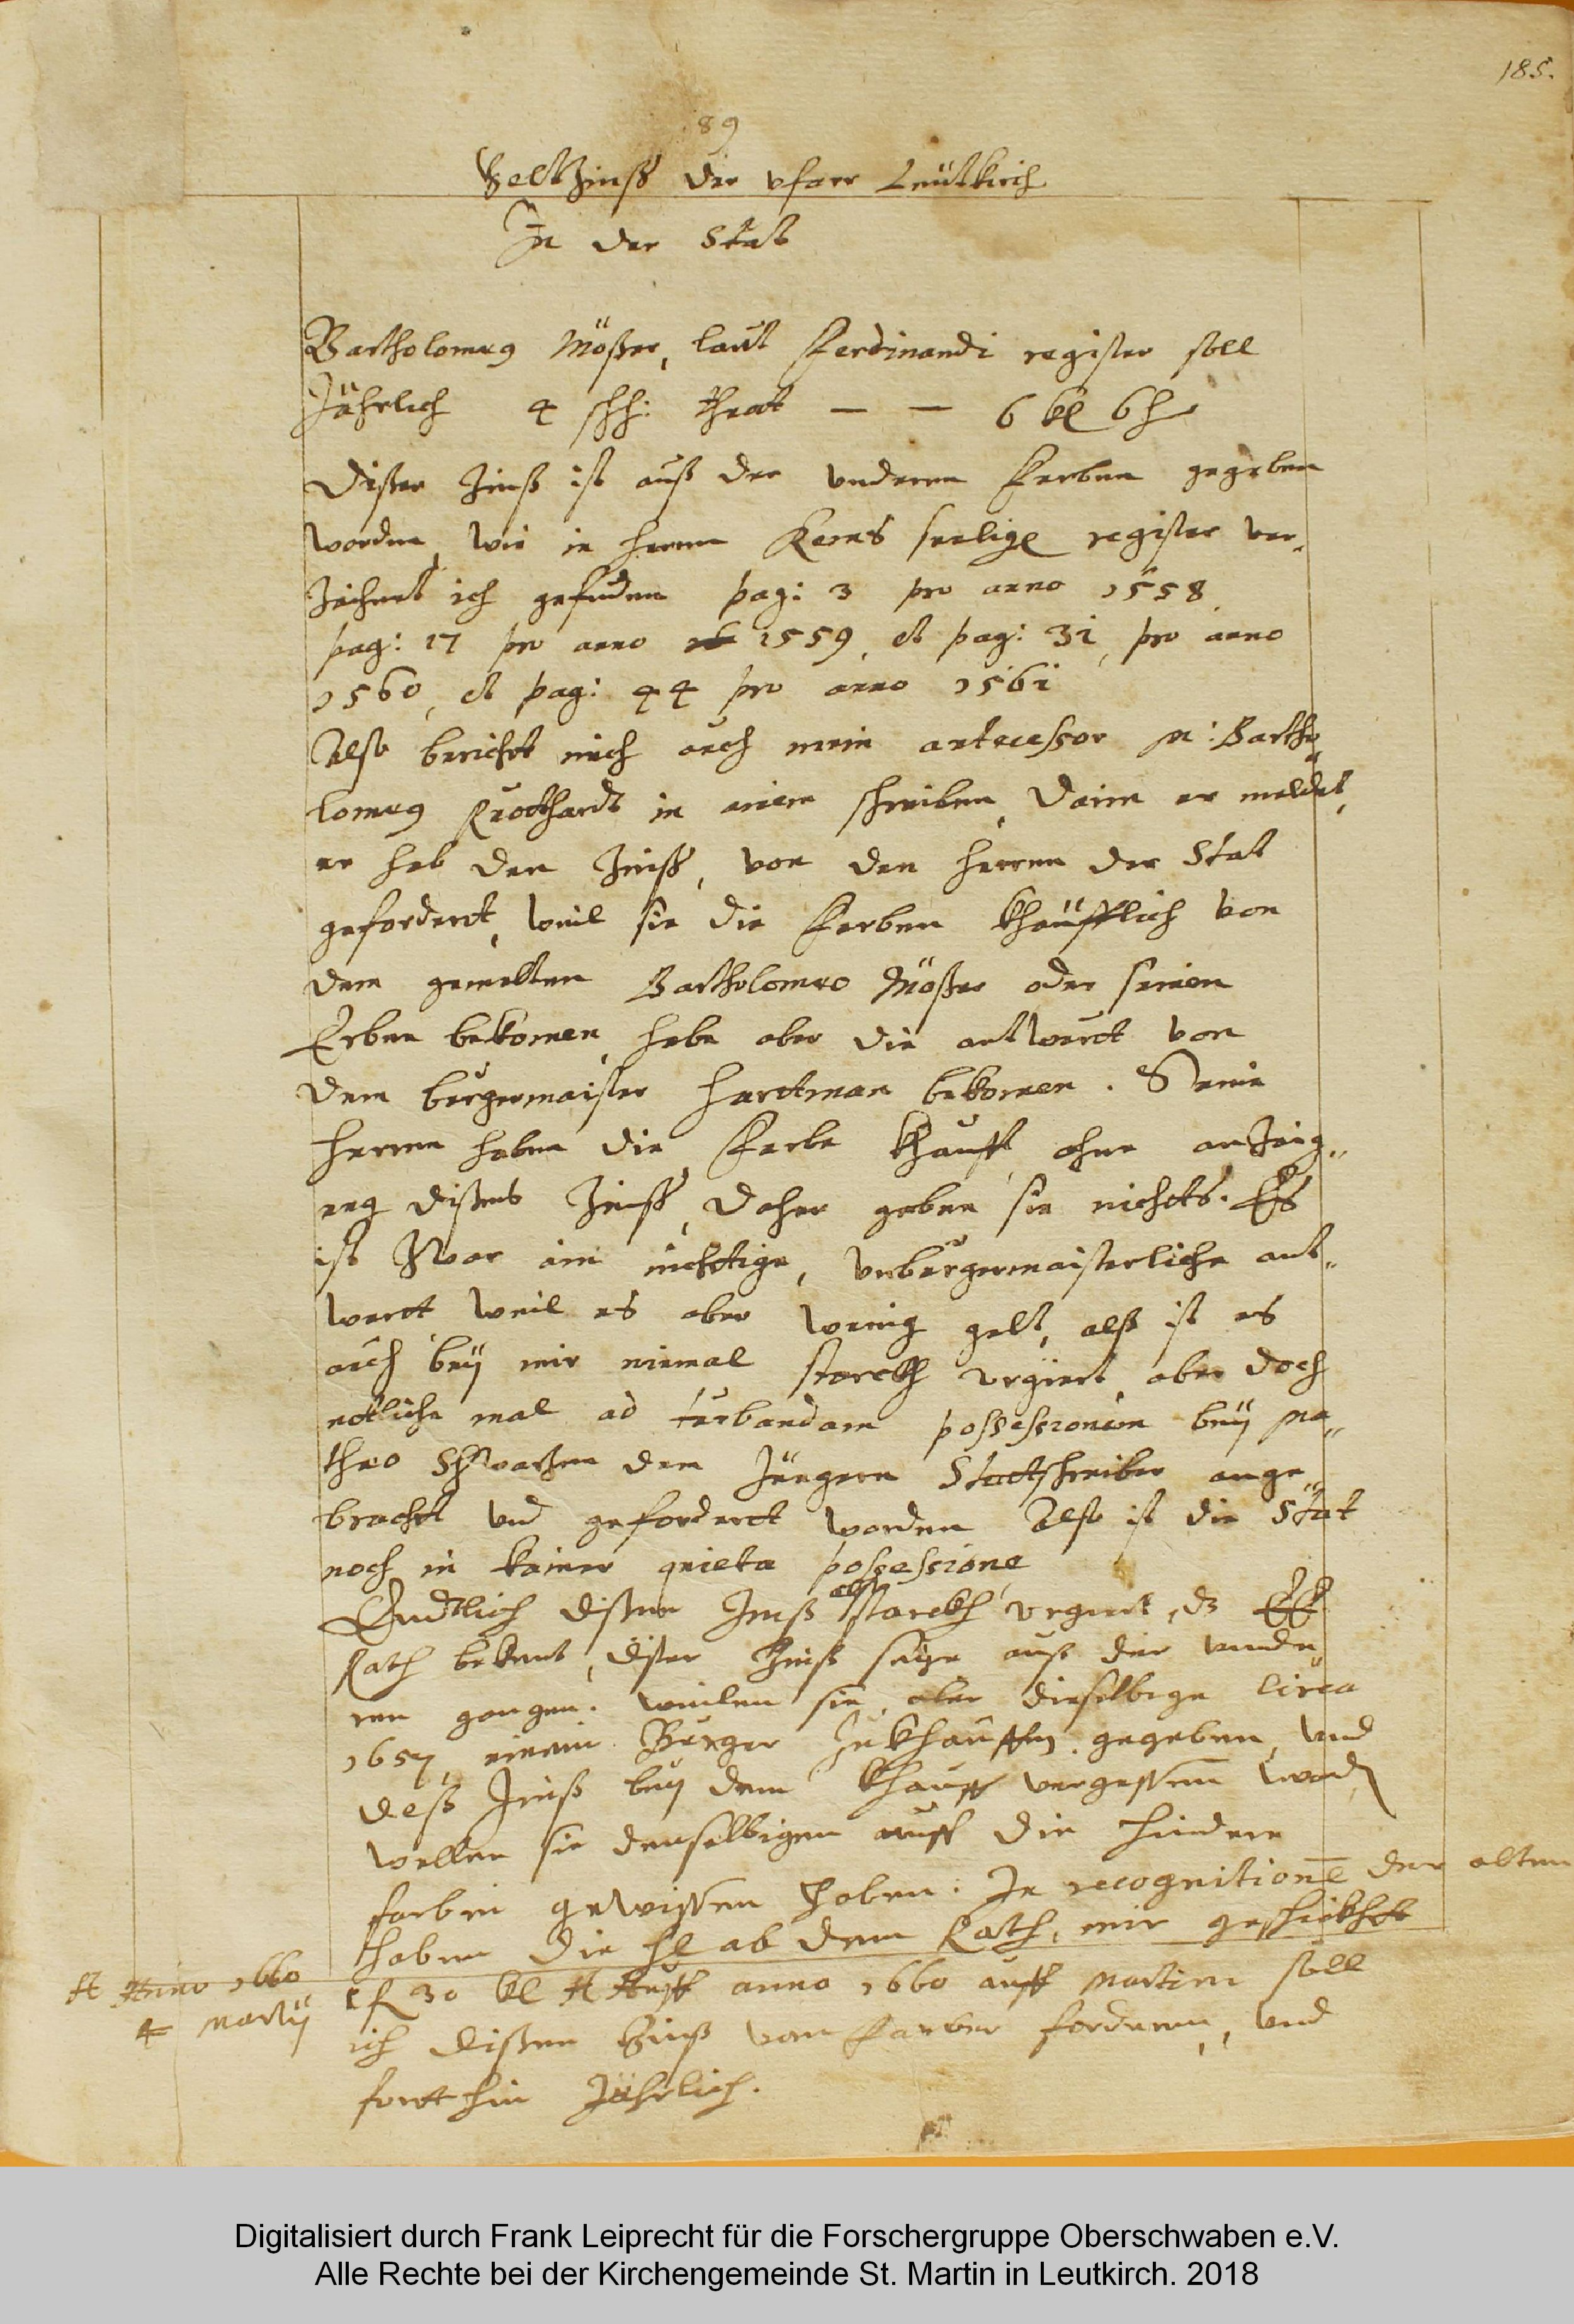 185.
89
Geltzinß der pfarr Leütkirch
In der Stat
Bartholomeus Mößer, laut Ferdinandi register soll
Jährlich 4 ßh: thuot — — 6 kl 6 h
Dißer Zinß ist auß der underen Farben gegeben
worden, wie in herren Kerns seelige register ver-
Zaichnet ich gefunden pag: 3 pro anno 1558,
pag: 17 pro anno 1559, et pag: 31, pro anno
1560, et pag: 44 pro anno 1561
Also bericht mich auch mein antecessor M: Bartho
lomeus Ruotthardt in einem schreiben, darin er meldet,
er hab den Zinß, von den herren der Stat
gefordert, weil sie die Farben khäufflich von
dem gemelten Bartholomeo Mößer oder seinen
Erben bekomen, habe aber die antwurdt von
dem burgermaister Hardtman bekomen. Seine
herren haben die Farbe khaufft ohne anzaig-
ung dißes Zinß, daher geben sie nichts. Es
ist zwar ein nichtige, unburgermaisterliche ant-
wurdt weil es aber wenig gelt, alß ist es
auch bey mir niemal starckh urgiert, aber doch
etliche mal ad turbandam possessionem bey Ma-
theo Schwartzen dem Jüngern Stattschreiber ange-
bracht und gefordert worden Also ist die Stat
noch in kainer quieta possessione
Endtlich dißen Zinß also starckh urgiert, dz
Rath bekent, dißer Zinß seye auß der unde
ren gangen. weilen sie aber dieselbige circa
1657 einem Burger Zukhauffen gegeben, und
deß Zinß bey dem khauff vergessen word
wellen sie denselbigen auff die hindere
farben gewissen haben. In recognitione der alten
haben die hl ab dem Rath, mir geschickht
1 fl 30 kl Auff anno 1660 auff Martini soll
ich dißen Zinß vom Farber forderen, und
fortthin Jährlich.
Anno 1660
4 Martij
Digitalisiert durch Frank Leiprecht für die Forschergruppe Oberschwaben e.V.
Alle Rechte bei der Kirchengemeinde St. Martin in Leutkirch. 2018